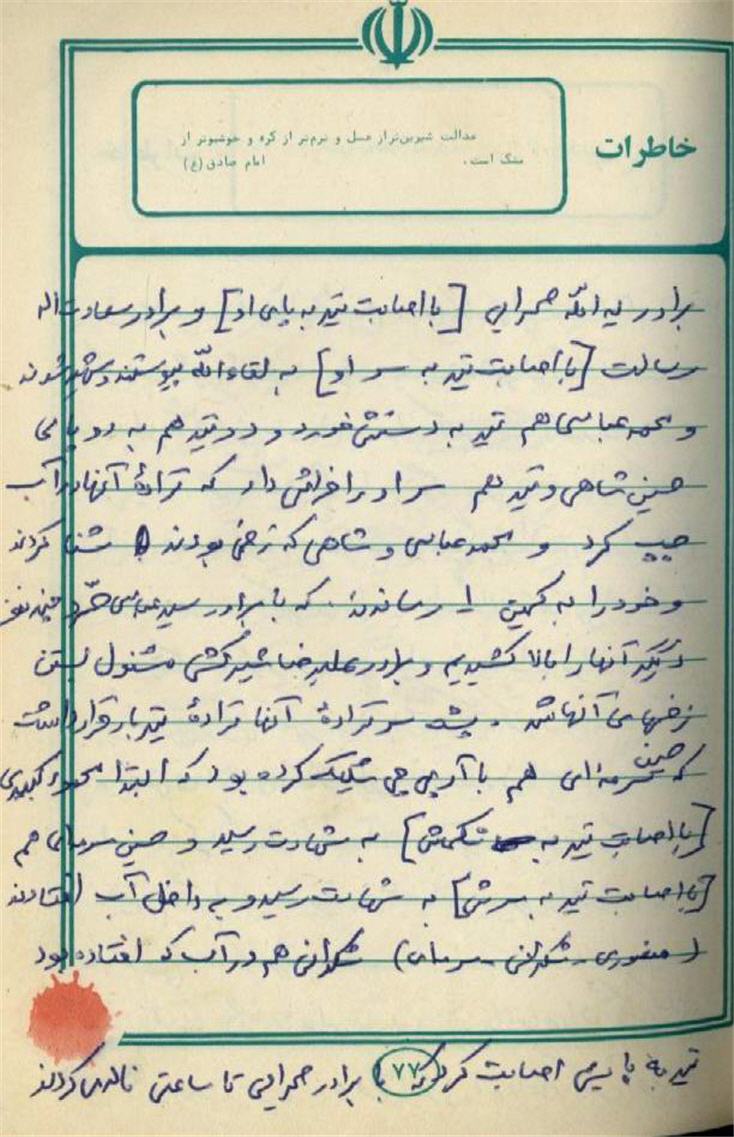 خاطرات
عدالت شیرین‌تر از عسل و نرم‌تر از کره و خوشبوتر از
مشک است. امام صادق (ع)
برادر یداله صحرایی [با اصابت تیر به پای او] و برادر سعادت اله
رسالت [با اصابت تیر به سر او] به لقاءالله پیوستند و شهید شدند
و محمد عباسی هم تیر به دستش خورد و دو تیر هم به دو پای
حسین شاهی و تیر هم سر او را خراش داد که قرادهٔ آنها در آب
چپ کرد و محمد عباسی و شاهی که زخمی بودند شنا کردند
و خود را به کمین ۱ رساندند که با برادر سید عباس چند نفر
دیگر آنها را بالا کشیدیم و برادر علیرضا شیرکش مشغول بستن
زخمهای آنها شد. پشت سر قرادهٔ آنها قرادهٔ تیربار قرار داشت
که حسین هم با آرپی جی شلیک کرده بود که ابتدا محمود
[با اصابت تیر به شکمش] به شهادت رسید و حسین سرمدی هم
[با اصابت تیر به سرش] به شهادت رسید و به داخل آب افتادند
(منصوری - شکرانی - سرمدی) شکرانی هم در آب که افتاده بود
تیر به پایش اصابت کرد که با برادر صحرایی تا ساعتی ناله می‌کردند
۷۷